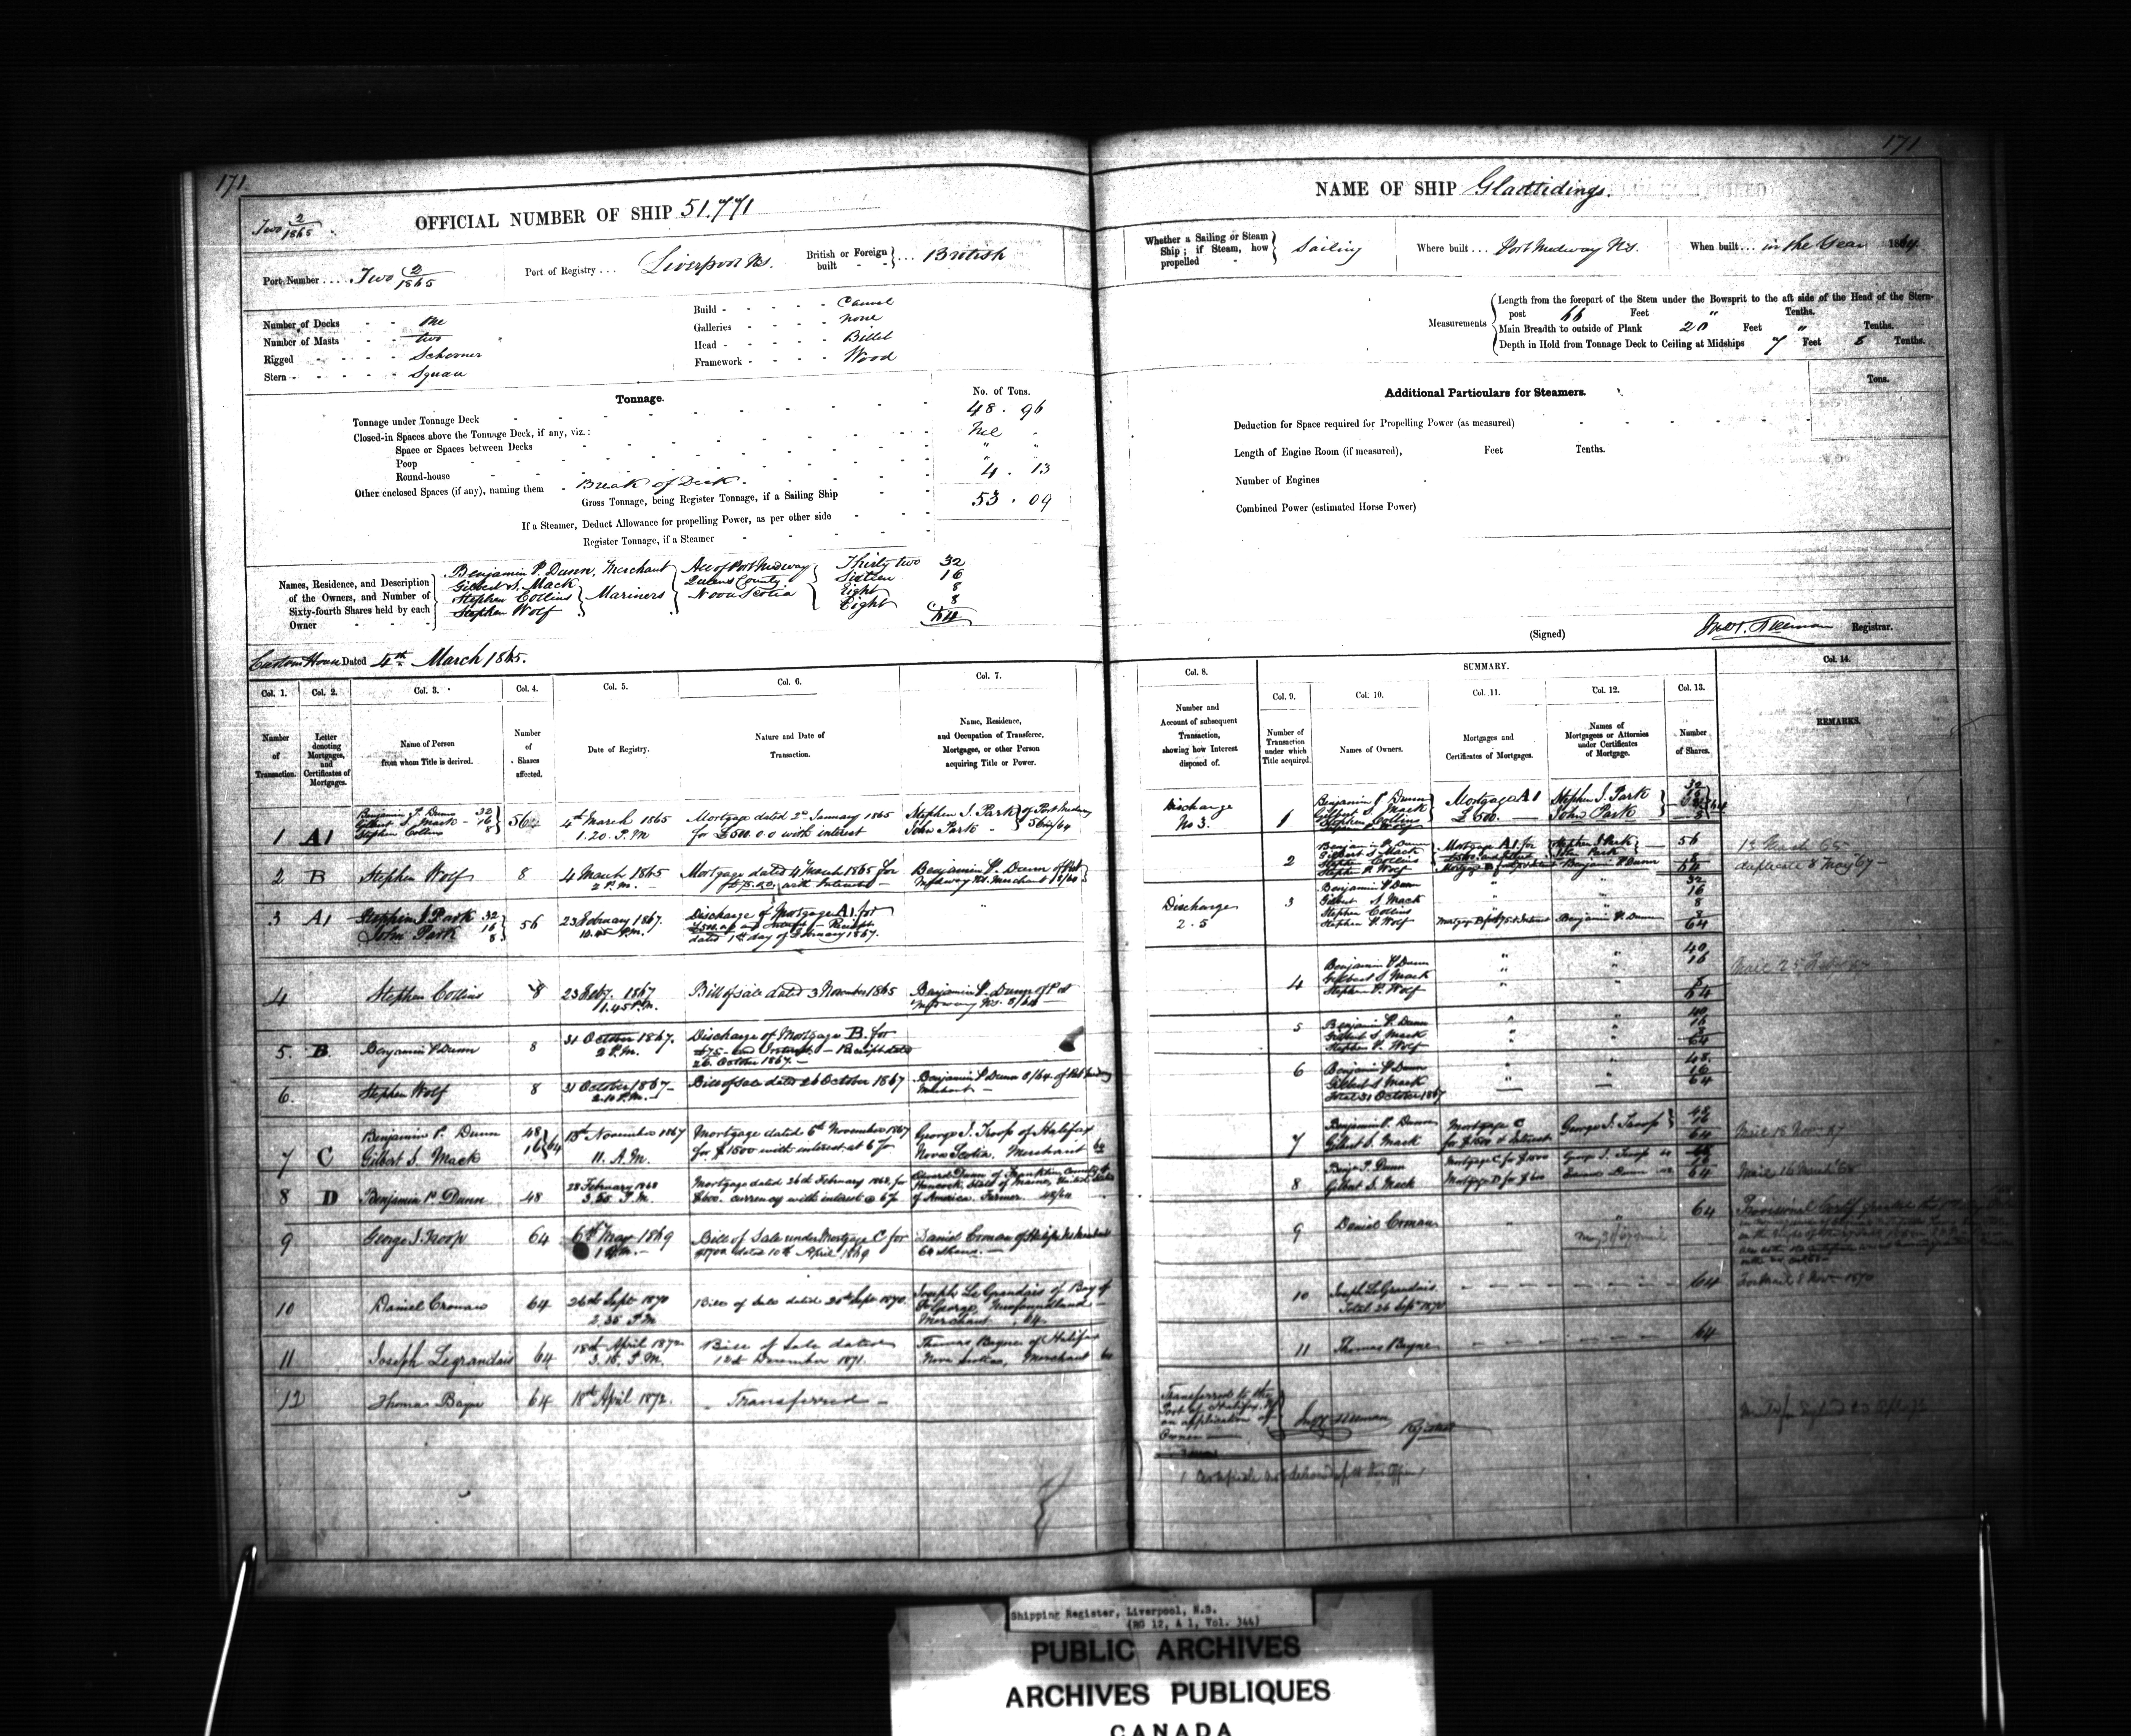 171
171
Two 2/1865
OFFICIAL NUMBER OF SHIP 51.771
Port Number .... Two 2/1865
Port of Registry ... Liverpool N.S.
British or Foreign built } ... British
Number of Decks - - One
Number of Masts - - two
Rigged - - - - Schooner
Stern - - - - - Square
Build - - - - - Carvel
Galleries - - - - none
Head - - - - - Billet
Framework - - - - Wood
Tonnage.
No. of Tons.
Tonnage under Tonnage Deck 48 . 96
Closed-in Spaces above the Tonnage Deck, if any, viz.: Nil
Space or Spaces between Decks " "
Poop
Round-house
Other enclosed Spaces (if any), naming them - Break of Deck. 4 . 13
Gross Tonnage, being Register Tonnage, if a Sailing Ship 53 . 09
If a Steamer, Deduct Allowance for propelling Power, as per other side
Register Tonnage, if a Steamer
Names, Residence, and Description of the Owners, and Number of Sixty-fourth Shares held by each Owner
Benjamin P. Dunn, Merchant } All of Port Medway { Thirty two 32
Gilbert S. Mack } Queens County Sixteen 16
Stephen Collins } Mariners Nova Scotia Eight 8
Stephen Wolf Eight 8
64
Custom House Dated 4th March 1865.
NAME OF SHIP Gladtidings.
Whether a Sailing or Steam Ship; if Steam, how propelled } Sailing
Where built ... Port Medway N.S.
When built ... in the Year 1864
Measurements
Length from the forepart of the Stem under the Bowsprit to the aft side of the Head of the Stern-
post 66 Feet " Tenths.
Main Breadth to outside of Plank 20 Feet " Tenths.
Depth in Hold from Tonnage Deck to Ceiling at Midships 7 Feet 8 Tenths.
Additional Particulars for Steamers.
Tons.
Deduction for Space required for Propelling Power (as measured)
Length of Engine Room (if measured), Feet Tenths.
Number of Engines
Combined Power (estimated Horse Power)
(Signed) Registrar.
Col. 1. Col. 2. Col. 3. Col. 4. Col. 5. Col. 6. Col. 7.
Number of Transaction.
Letter denoting Mortgages, and Certificates of Mortgages.
Name of Person from whom Title is derived.
Number of Shares affected.
Date of Registry.
Nature and Date of Transaction.
Name, Residence, and Occupation of Transferee, Mortgagee, or other Person acquiring Title or Power.
1 A1 Benjamin P. Dunn 32 Gilbert S. Mack - 16 Stephen Collins 8 56 4th March 1865 1.20. P.M Mortgage dated 2d January 1865 for £500.0.0 with interest Stephen J. Park John Park } of Port Medway 56/64
2 B Stephen Wolf 8 4 March 1865 2 P.M. Mortgage dated 4 March 1865 for £75.0.0. with Interest - Benjamin P. Dunn of Port Medway N.S. Merchant 8/64
3 A1 Stephen J. Park 32 John Park 16 8 56 23 February 1867. 12.45 P.M. Discharge of Mortgage A1. for Receipt dated 1st day of February 1867.
4 Stephen Collins 8 23 Feby. 1867 1.45 P.M. Bill of sale dated 3 November 1865 Benjamin P. Dunn of Port Medway N.S. 8/64
5. B Benjamin P Dunn 8 31 October 1867. 2 P.M. Discharge of Mortgage B. for £75 - and Interest - Receipt dated 26 October 1867. -
6. Stephen Wolf 8 31 October 1867 - 2.10 P.M. Bill of Sale dated 26 October 1867 Benjamin P Dunn 8/64. of Port Medway Merchant -
7 C Benjamin P. Dunn 48 Gilbert S. Mack 16 64 15th November 1867 11. A.M. Mortgage dated 6th November 1867 for $1500 with interest at 6 % George J. Troop of Halifax Nova Scotia. Merchant 64
8 D Benjamin P. Dunn 48 28 February 1868 3.55 P.M. Mortgage dated 26th February 1868, for $600. currency with interest @ 6 % Edward Dunn of Franklin County of Hancock, State of Maine, United States of America. Farmer. 48/64
9 George J. Troop 64 6th May 1869 1 P.M. - Bill of Sale under Mortgage C for dated 10th April 1869 Daniel Cronan of Halifax N.S. Merchant 64 Shares. -
10 Daniel Cronan 64 26th Sept 1870 2.35 P.M Bill of Sale dated 20th Sept 1870. Joseph LeGrandais of Bay of St George, Newfoundland - Merchant . 64.
11 Joseph Legrandais 64 18th April 1872 3.15. P.M. Bill of Sale dated 12th December 1871. Thomas Bayne of Halifax Nova Scotia, Merchant 64
12 Thomas Bayne 64 18th April 1872. - Transferred -
Col. 8.
Number and Account of subsequent Transaction, showing how Interest disposed of.
SUMMARY.
Col. 9. Col. 10. Col. 11. Col. 12. Col. 13. Col. 14.
Number of Transaction under which Title acquired.
Names of Owners.
Mortgages and Certificates of Mortgages.
Names of Mortgagees or Attornies under Certificates of Mortgage.
Number of Shares.
REMARKS.
Discharge No 3. 1 Benjamin P Dunn Gilbert S. Mack Stephen Collins Stephen P. Wolf Mortgage A1 £500. - Stephen J. Park John Park
2 Benjamin P. Dunn Gilbert S. Mack Stephen Collins Stephen P. Wolf Mortgage A1 for Stephen J Park John Park Benjamin P Dunn 56 8 64 13 March 65 - duplicate 8 May 67 -
Discharge 2.5 3 Benjamin P Dunn Gilbert S Mack Stephen Collins Stephen P. Wolf Benjamin P. Dunn 32 16 8 8 64
4 Benjamin P Dunn Gilbert S Mack Stephen P. Wolf 40 16 8 64
5 Benjamin P. Dunn Gilbert S. Mack Stephen P. Wolf 40 16 8 64
6 Benjamin P Dunn Gilbert S Mack Total 31 October 1867 48. 16 64
7 Benjamin P. Dunn Gilbert S. Mack Mortgage C for $1500 & Interest George J. Troop 48 16 64
8 Benjn P. Dunn Gilbert S. Mack Mortgage C for $1500 Mortgage D for $600 George J. Troop 64 Edward Dunn 64
9 Daniel Cronan 64
10 Joseph LeGrandais Total 26 Sept 1870 64
11 Thomas Bayne 64
Transferred to the Port of Halifax, NS on application of Owner -
Registrar
Shipping Register, Liverpool, N.S.
(RG 12, A 1, Vol. 344)
PUBLIC ARCHIVES
ARCHIVES PUBLIQUES
CANADA